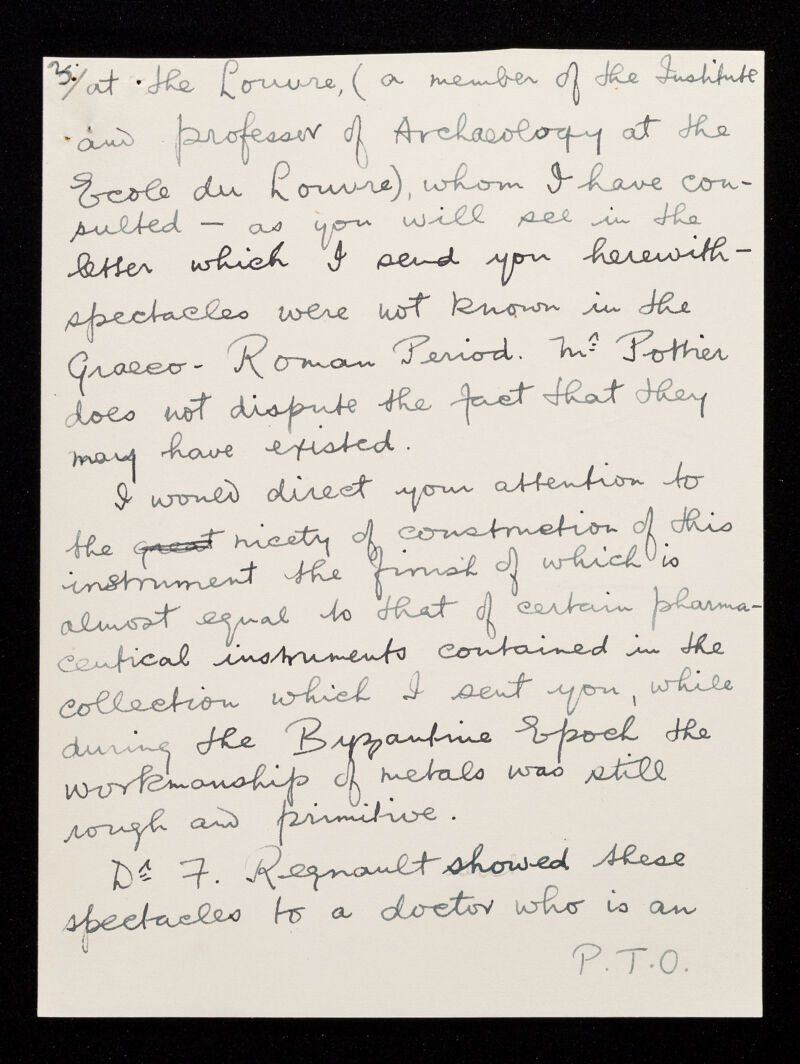 3./ at the Louvre, ( a member of the Institute
and professor of Archaeology at the
Ecole du Louvre), whom I have con-
sulted — as you will see in the
letter which I send you herewith —
spectacles were not known in the
Graeco - Roman Period. Mr Pottier
does not dispute the fact that they
may have existed.
I would direct your attention to
the great nicety of construction of this
instrument the finish of which is
almost equal to that of certain pharma-
ceutical instruments contained in the
collection which I sent you, while
during the Byzantine Epoch the
workmanship of metals was still
rough and primitive.
Dr F. Regnault showed these
spectacles to a doctor who is an
P.T.O.